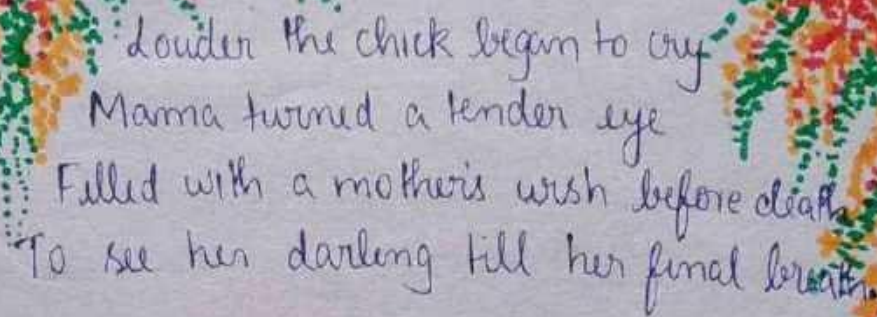 Louder the chick began to cry
Mama turned a tender eye
Filled with a mother's wish before death
To see her darling till her final breath.